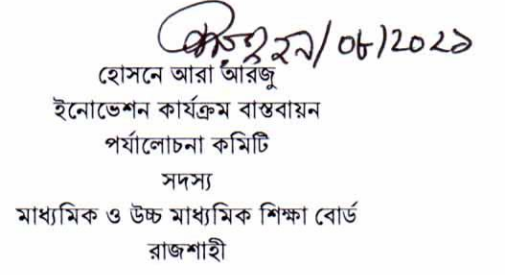 হোসনে আরা আরজু
ইনোভেশন কার্যক্রম বাস্তবায়ন
পর্যালোচনা কমিটি
সদস্য
মাধ্যমিক ও উচ্চ মাধ্যমিক শিক্ষা বোর্ড
রাজশাহী